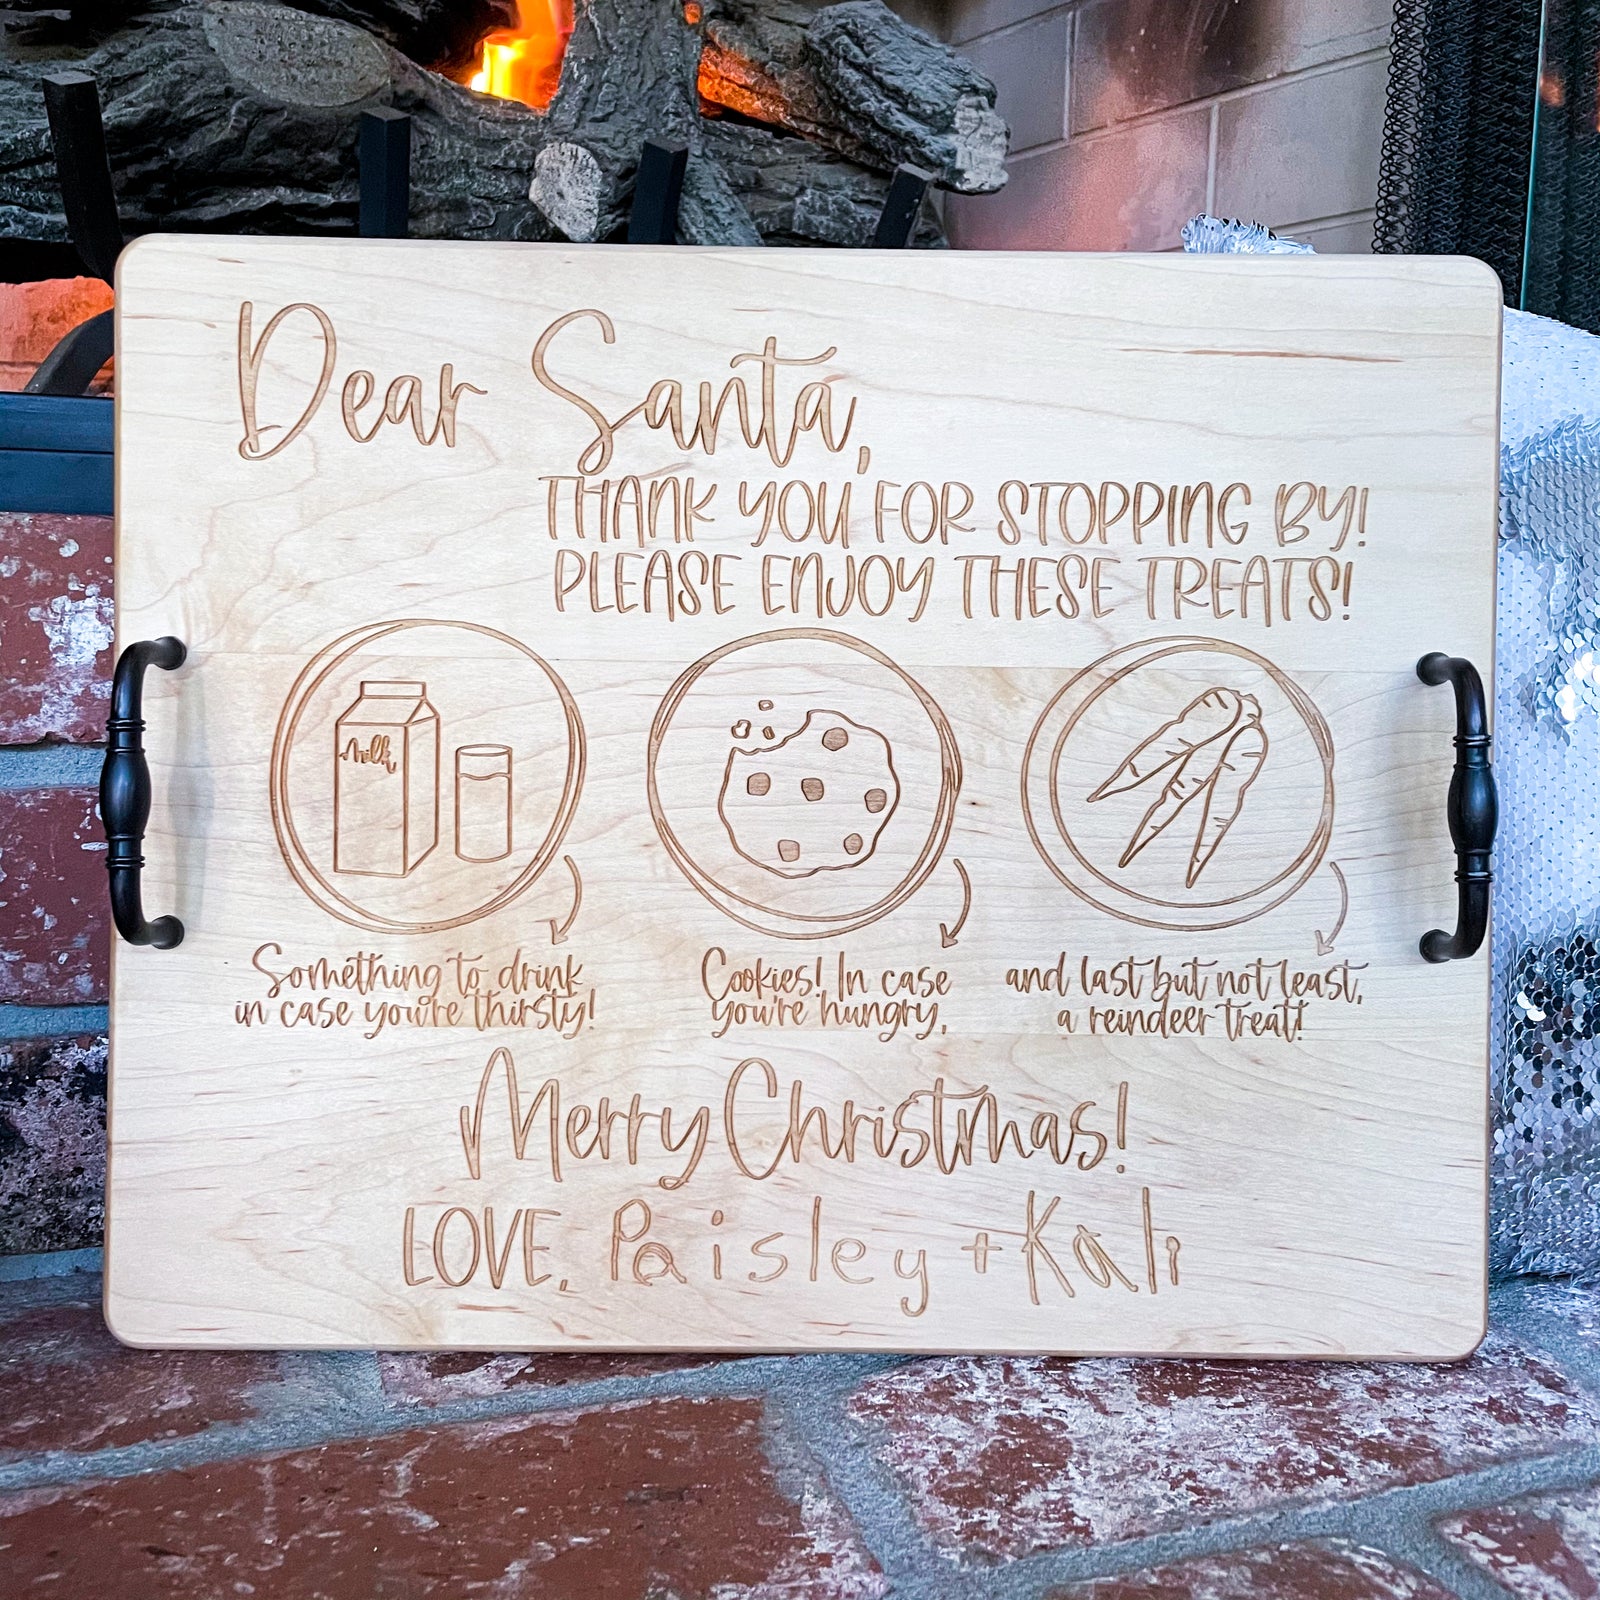 Dear Santa,
THANK YOU FOR STOPPING BY!
PLEASE ENJOY THESE TREATS!
Milk
Something to drink
in case you're thirsty!
Cookies! In case
you're hungry,
and last but not least,
a reindeer treat!
Merry Christmas!
LOVE, Paisley + Kali